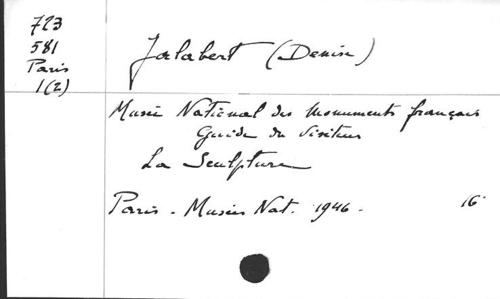 723
581
Paris
1(2)
Jalabert (Denise)
Musée National des Monuments français
Guide du Visiteur
La Sculpture
Paris - Musées Nat. 1946 - 16